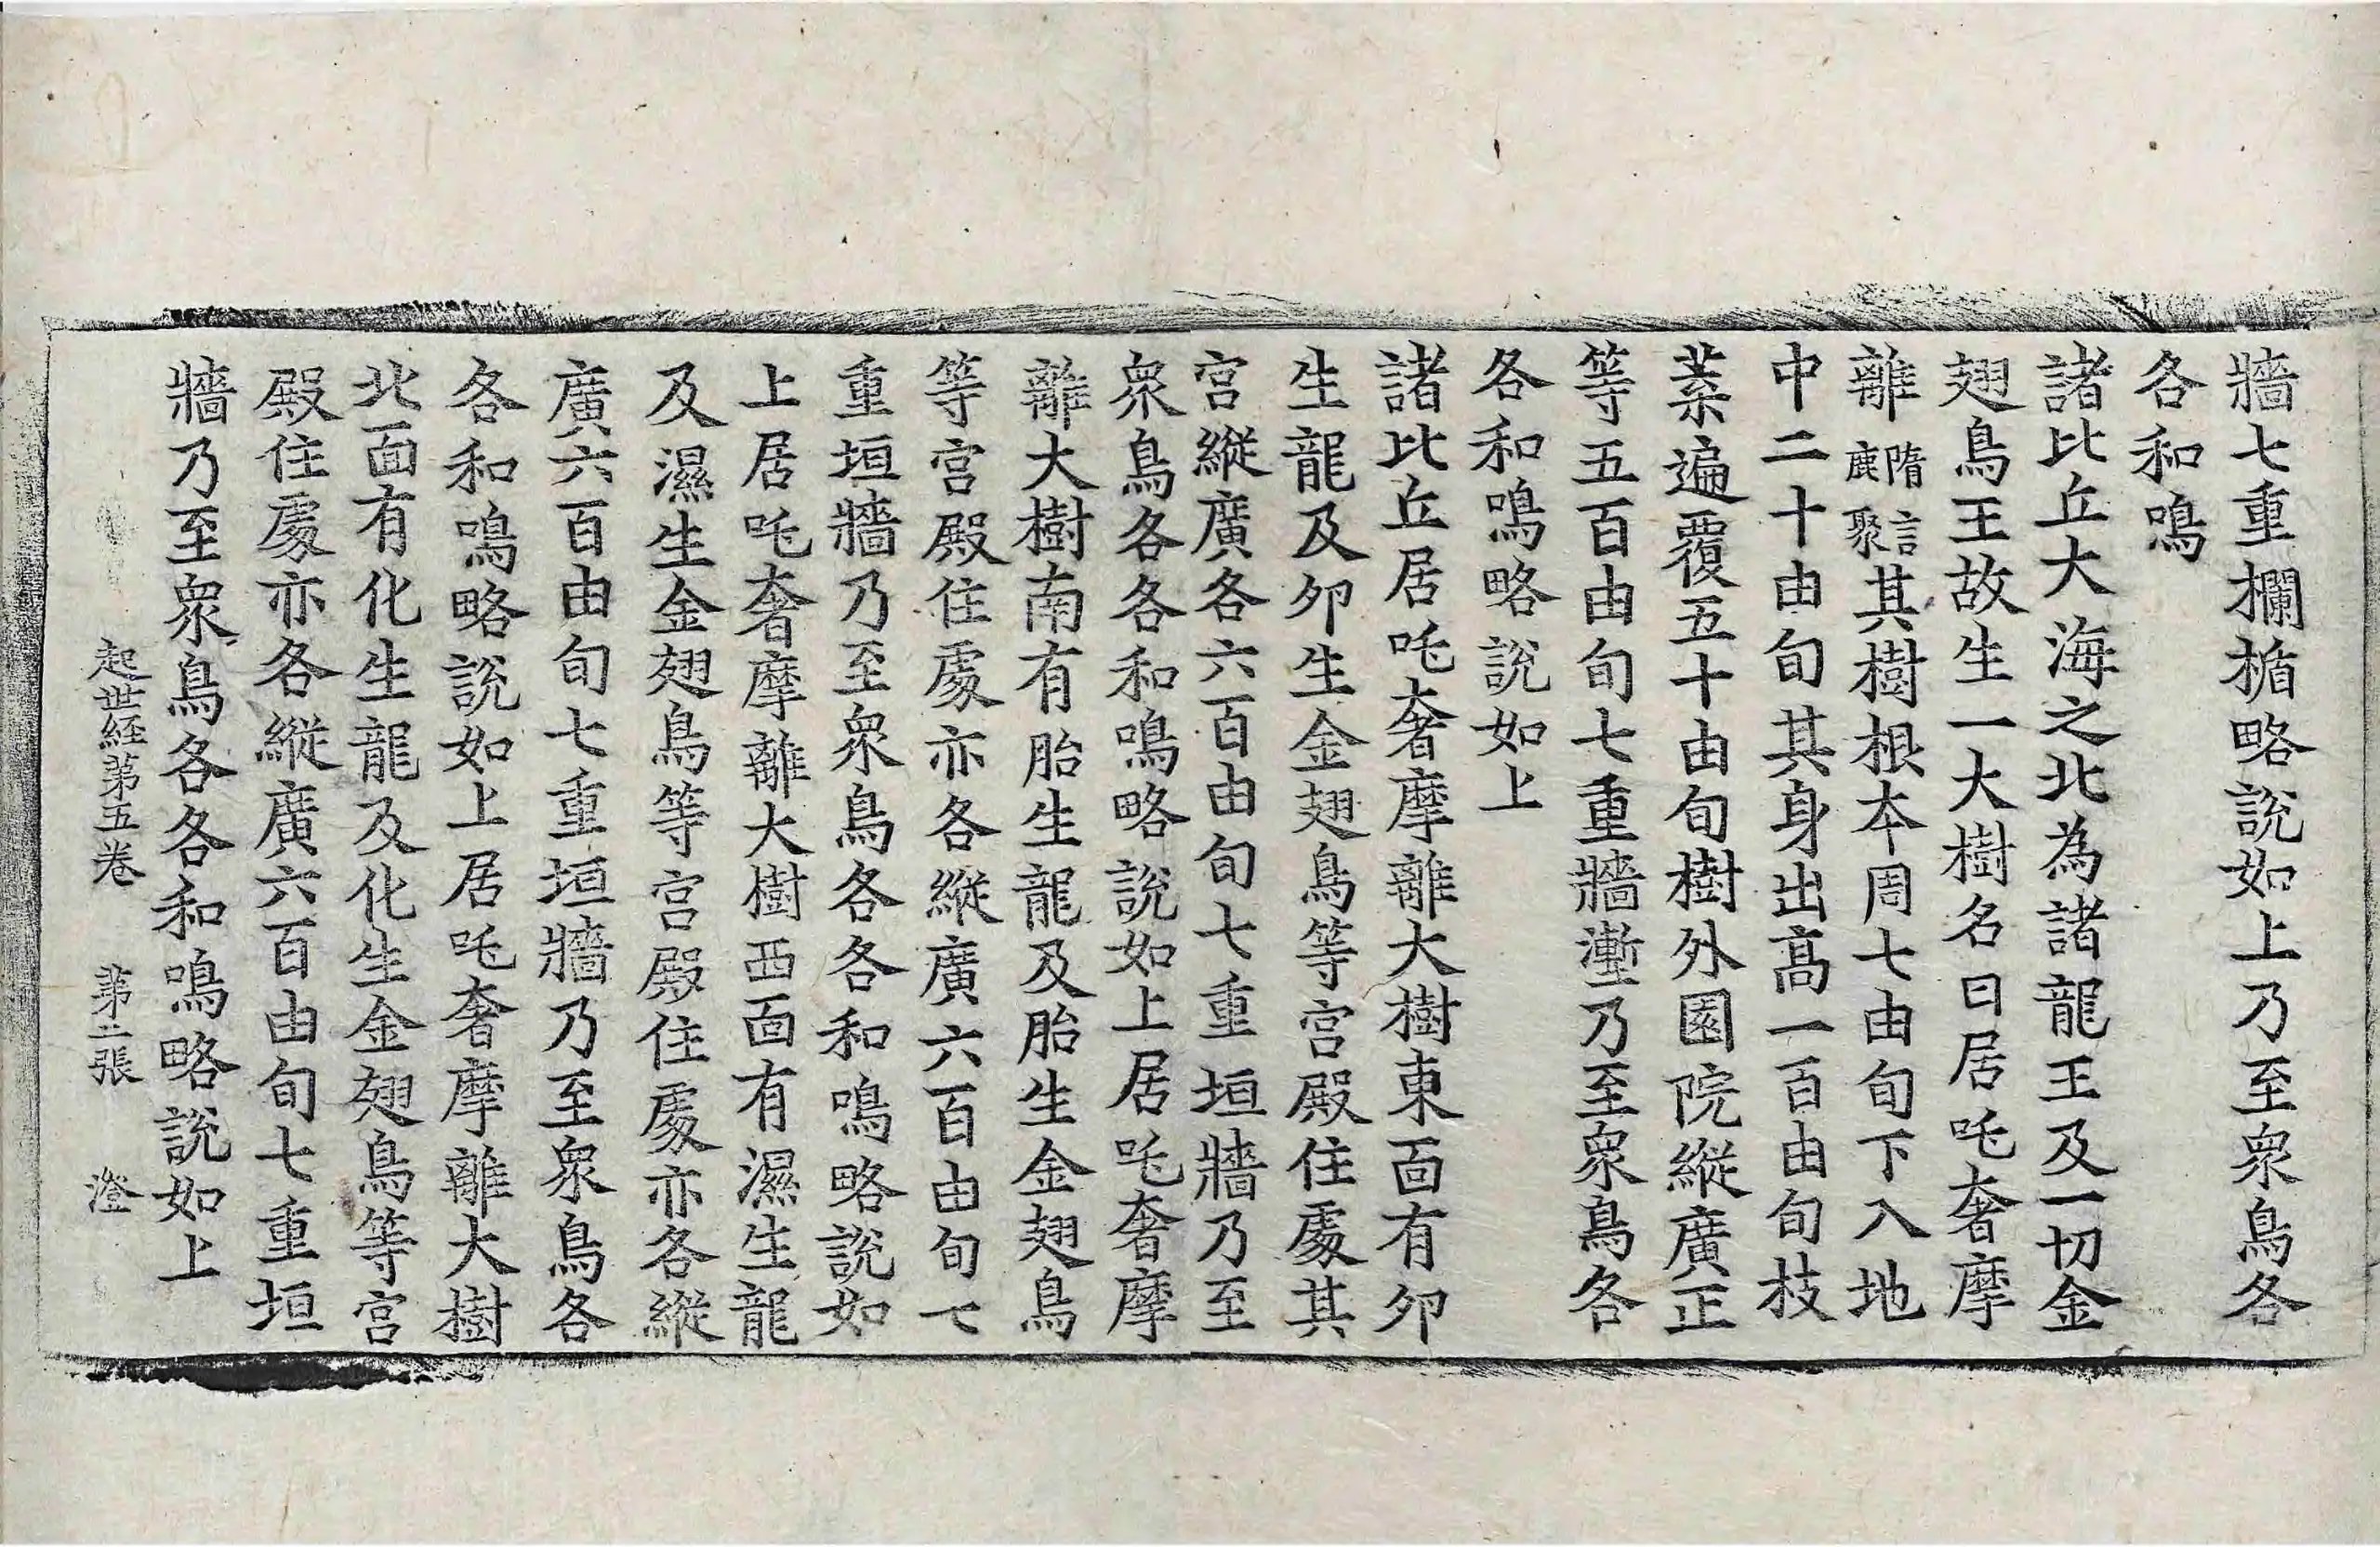 牆七重欄楯略說如上乃至衆鳥各
各和鳴
諸比丘大海之北為諸龍王及一切金
翅鳥王故生一大樹名曰居吒奢摩
離隋言鹿聚其樹根本周七由旬下入地
中二十由旬其身出高一百由旬枝
葉遍覆五十由旬樹外園院縱廣正
等五百由旬七重牆壍乃至衆鳥各
各和鳴略說如上
諸比丘居吒奢摩離大樹東面有卵
生龍及卵生金翅鳥等宮殿住處其
宮縱廣各六百由旬七重垣牆乃至
衆鳥各各和鳴略說如上居吒奢摩
離大樹南有胎生龍及胎生金翅鳥
等宮殿住處亦各縱廣六百由旬七
重垣牆乃至衆鳥各各和鳴略說如
上居吒奢摩離大樹西面有濕生龍
及濕生金翅鳥等宮殿住處亦各縱
廣六百由旬七重垣牆乃至衆鳥各
各和鳴略說如上居吒奢摩離大樹
北面有化生龍及化生金翅鳥等宮
殿住處亦各縱廣六百由旬七重垣
牆乃至衆鳥各各和鳴略說如上
起世経第五卷 第二張 澄